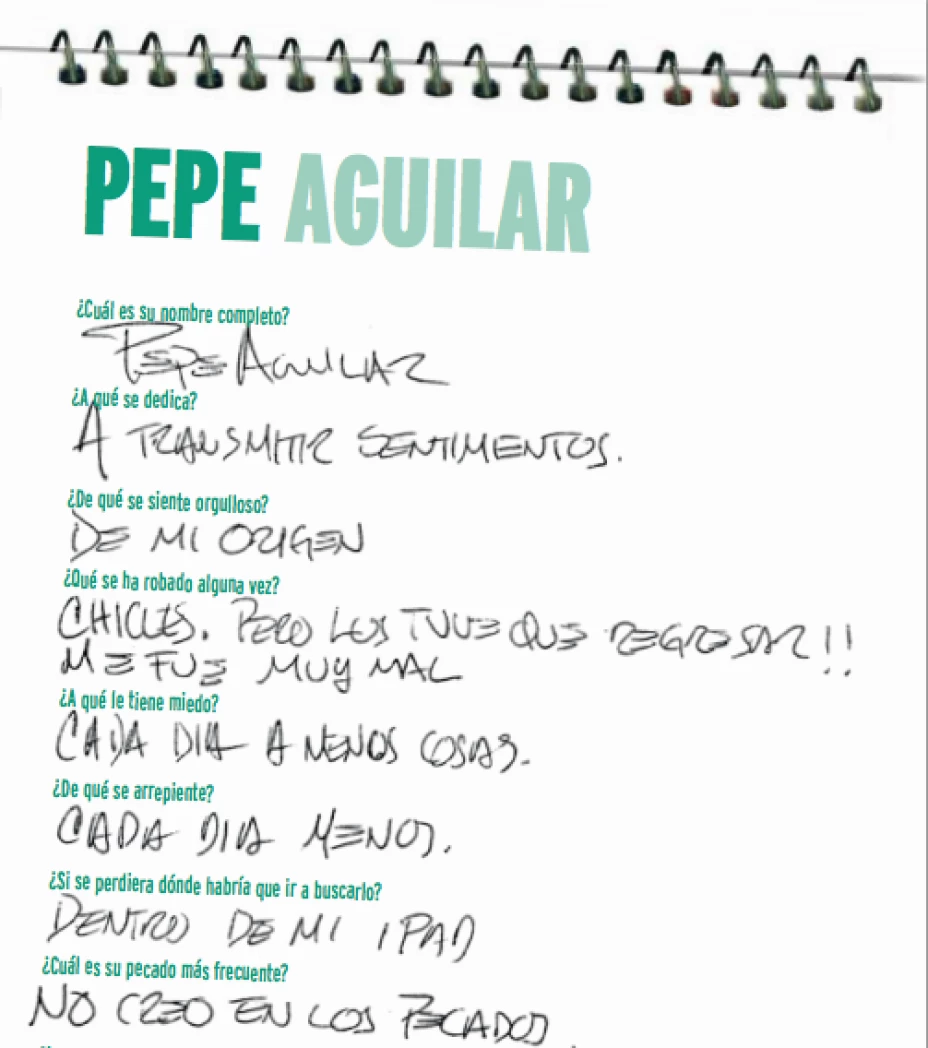 PEPE AGUILAR
¿Cuál es su nombre completo?
PEPE AGUILAR
¿A qué se dedica?
A TRANSMITIR SENTIMENTOS.
¿De qué se siente orgulloso?
DE MI ORIGEN
¿Qué se ha robado alguna vez?
CHICLES. PERO LOS TUVE QUE REGRESAR!!
ME FUE MUY MAL
¿A qué le tiene miedo?
CADA DIA A MENOS COSAS.
¿De qué se arrepiente?
CADA DIA MENOS.
¿Si se perdiera dónde habría que ir a buscarlo?
DENTRO DE MI IPAD
¿Cuál es su pecado más frecuente?
NO CREO EN LOS PECADOS.